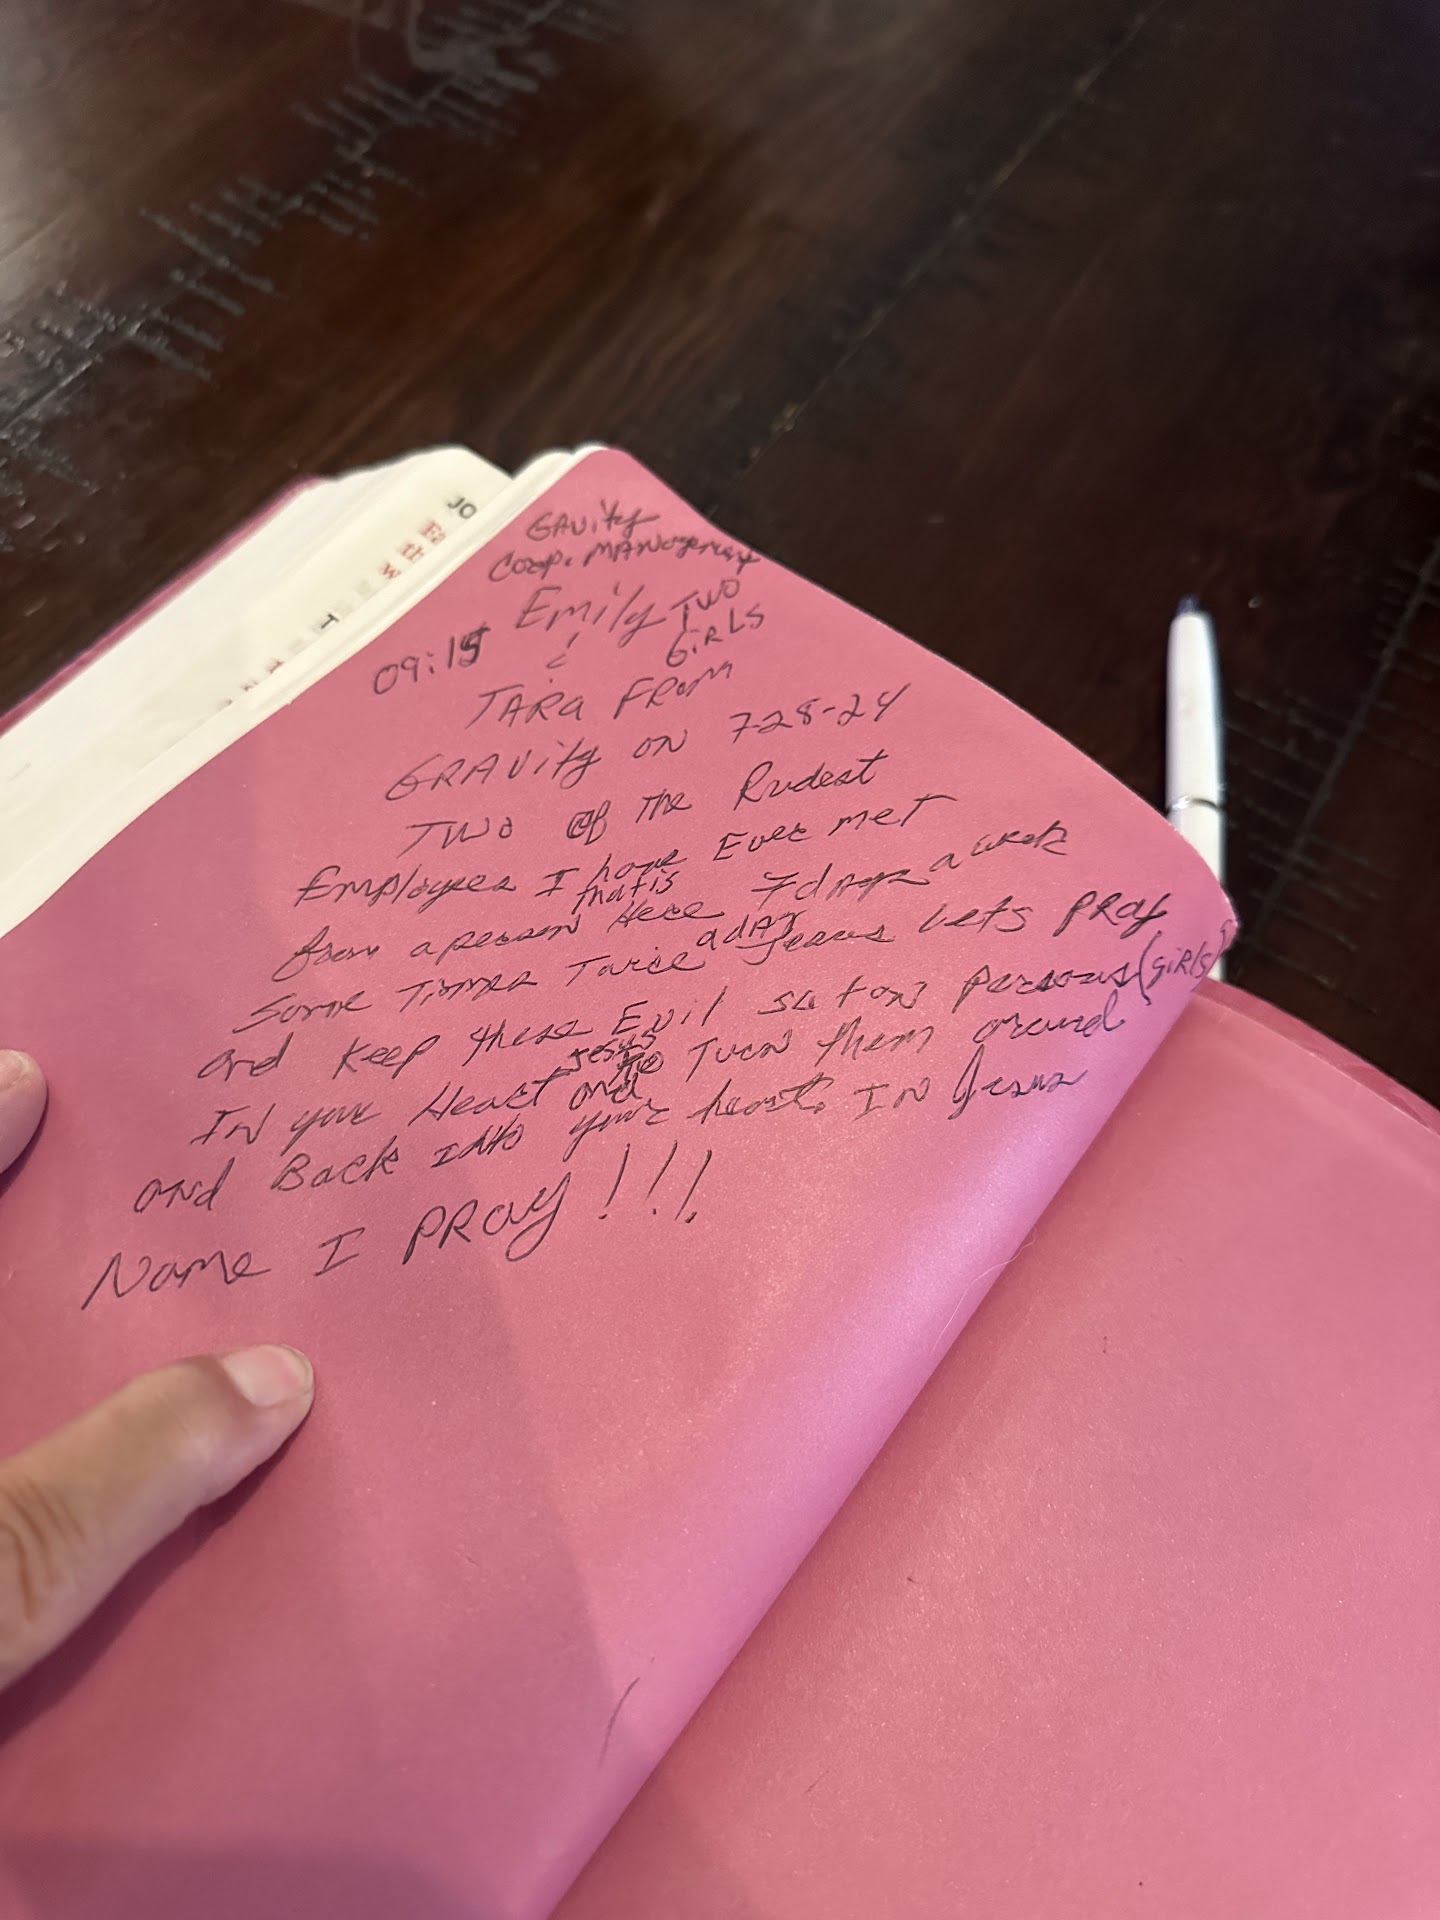 GAvity
Coop. MANagement
Emily TWO
09:15 & GiRLS
TARa FRom
GRAvity ON 7-28-24
TWO of the Rudest
Employees I have Ever met
from a person that is Here 7 days a week
Some Times Twice a dAy Jesus Lets PRay
and Keep these Evil Persons (GiRLS)
IN your Heart Jesus and to Turn them around
and Back into your heart. IN Jesus
Name I PRay!!!
JO
T